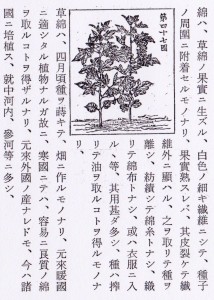 綿ハ、草綿ノ果實ニ生ズル、白色ノ細キ纖維ニシテ、種子
ノ周圍ニ附着セルモノナリ、果實熟スレバ、其皮裂ケテ纖
第四十七圖
維外ニ顯ハル、之ヲ取リテ種ヲ
離シ、紡績シテ綿絲トナシ、織
リテ綿布トナシ、或ハ衣服ニ入
ル、等、其用甚ダ多シ、種ハ搾
リテ油ヲ取ルコトヲ得ルモノナ
リ、
草綿ハ、四月頃種ヲ蒔キテ、畑ニ作ルモノナリ、元來暖國
ニ適シタル植物ナルガ故ニ、寒國ニテハ、容易ニ良質ノ綿
ヲ取ルコトヲ得ザルナリ、元來外國ノ産ナレドモ、今ハ諸
國ニ培植ス、就中河内、參河等ニ多シ、